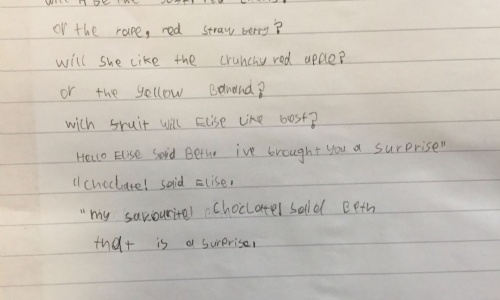 or the rape, red straw berry?
will she like the crunchy red apple?
or the yellow Banana?
wich fruit will Elise like best?
Hello Elise said Beth. ive brought you a surprise"
"choclate! said Elise.
"my savourite! choclate! said Beth
that is a surprise.